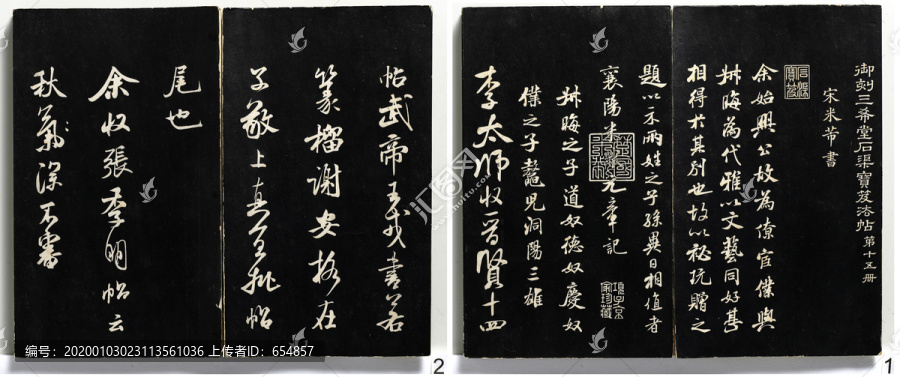 御刻三希堂石渠寶笈法帖第十五冊
宋米芾書
石渠寶笈
余始興公故為僚宦僕與
叔晦為代雅以文藝同好甚
相得於其別也故以秘玩贈之
題以示兩姓之子孫異日相值者
襄陽米元章記
項子京家珍藏
叔晦之子道奴德奴慶奴
僕之子鼇兒洞陽三雄
李太師收晉賢十四
1
帖武帝王戎書若
篆籀謝安格在
子敬上真宜批帖
尾也
余收張季明帖云
秋氣深不審
2
编号:20200103023113561036 上传者ID:654857